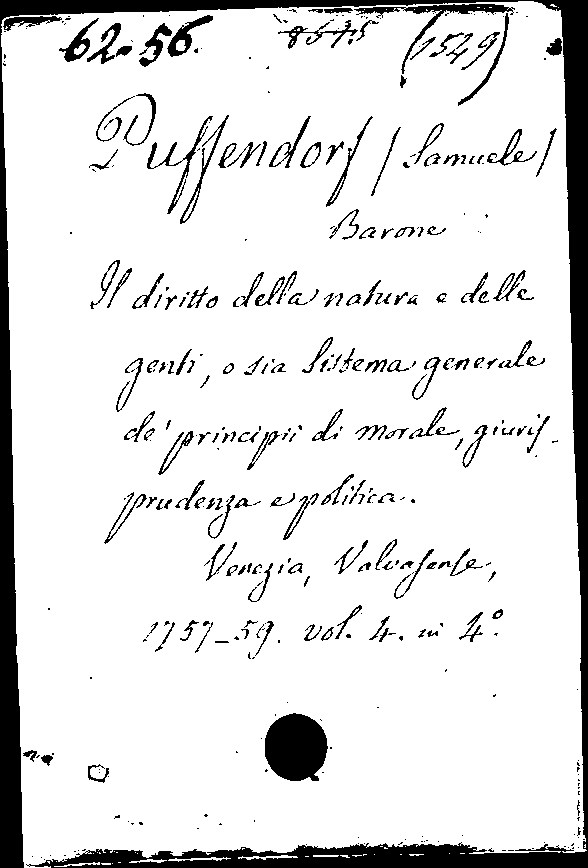 62-56. (1529)
Puffendorf / Samuele /
Barone
Il diritto della natura e delle
genti, o sia Sistema generale
de' principii di morale, giuris-
prudenza e politica.
Venezia, Valvasense,
1757-59. vol. 4. in 4º.